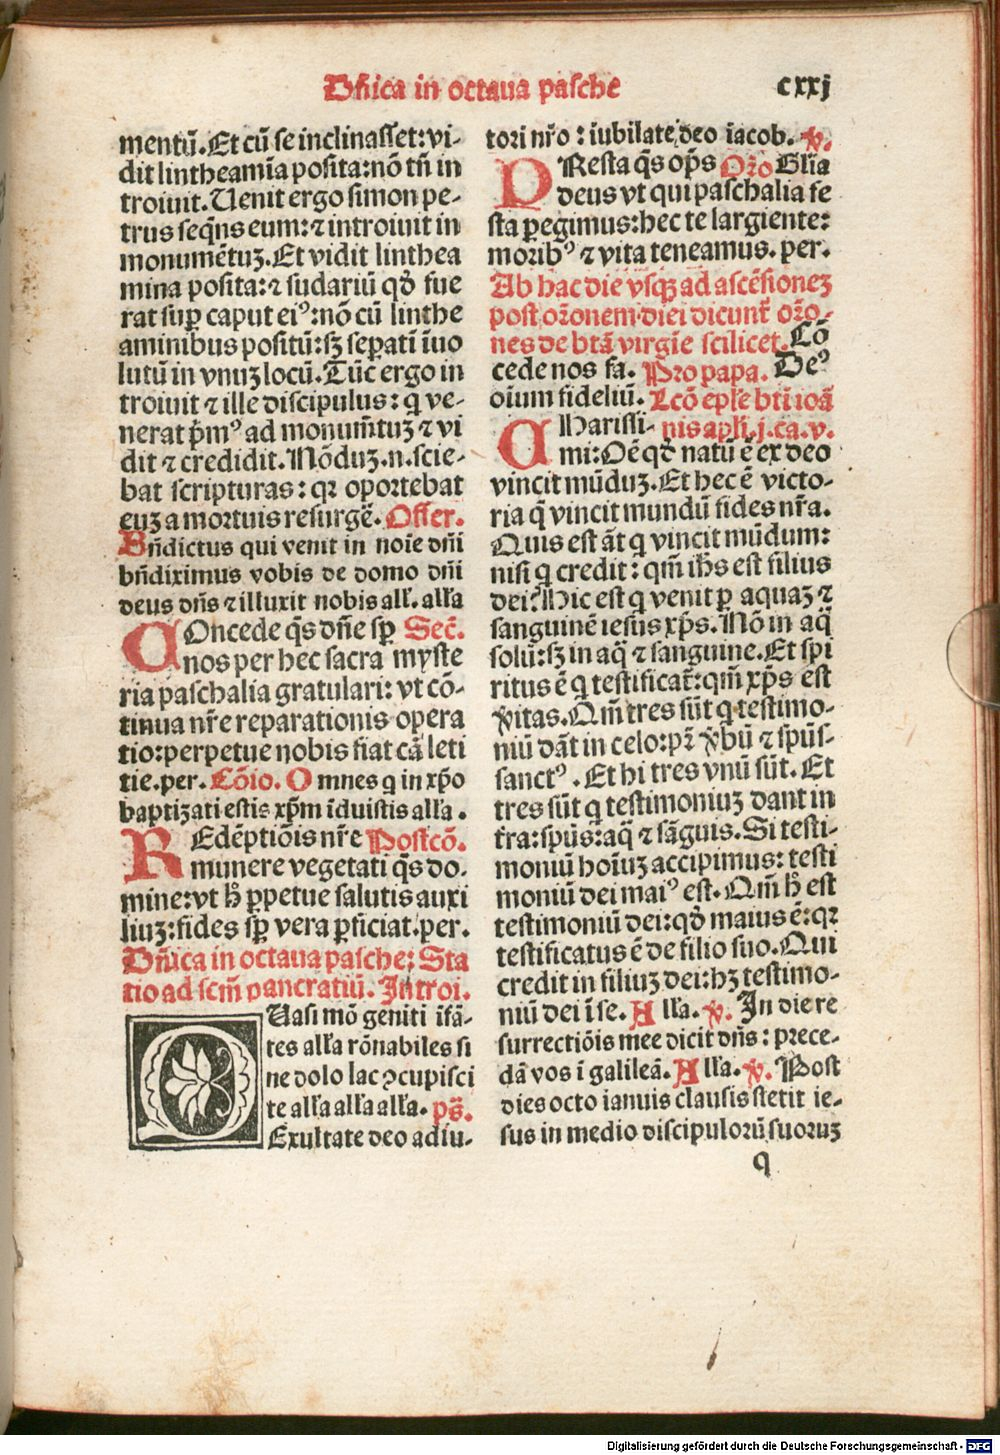 Dñica in octaua pasche
cxxj
mentū. Et cū se inclinasset: vi-
dit lintheamīa posita: nō tn̄ in
troiuit. Uenit ergo simon pe-
trus seq̄ns eum: ⁊ introiuit in
monumētuꝫ. Et vidit linthea
mina posita: ⁊ sudariū qd̄ fue
rat suꝑ caput eiꝰ: nō cū linthe
aminibus positū: sꝫ seꝑatī īuo
lutū in vnuꝫ locū. Tūc ergo in
troiuit ⁊ ille discipulus: q ve-
nerat p̄mꝰ ad monum̄tuꝫ ⁊ vi
dit ⁊ credidit. Nōduꝫ .n. scie-
bat scripturas: qꝛ oportebat
euꝫ a mortuis resurgē. Offer.
Bn̄dictus qui venit in noīe dn̄i
bn̄diximus vobis de domo dn̄i
deus dn̄s ⁊ illuxit nobis all̄. all̄a
COncede q̄s dn̄e sꝑ Sec̄.
nos per hec sacra myste
ria paschalia gratulari: vt cō-
tinua nr̄e reparationis opera
tio: perpetue nobis fiat cā leti
tie. per. Cōio. Omnes q in xp̄o
baptiꝫati estis xp̄m īduistis all̄a.
REdēptiōis nr̄e Postcō.
munere vegetati q̄s do-
mine: vt h̄ ꝑpetue salutis auxi
liuꝫ: fides sꝑ vera ꝑficiat. per.
Dn̄ica in octaua pasche: Sta
tio ad scm̄ pancratiū. Introi.
QUasi mō geniti īfā-
tes all̄a rōnabiles si
ne dolo lac ꝯcupisci
te all̄a all̄a all̄a. ps̄.
Exultate deo adiu-
tori nr̄o: iubilate deo iacob. ℣.
PResta q̄s op̄s Orō Gl̄ia
deus vt qui paschalia fe
sta ꝑegimus: hec te largiente:
moribꝰ ⁊ vita teneamus. per.
Ab hac die vsqꝫ ad ascēsioneꝫ
post orōnem diei dicunt̄ orō-
nes de btā virgīe scilicet. Cō
cede nos fa. Pro papa. Deꝰ
oīum fideliū. Lcō epl̄e bti̅ ioā
CHarissi- nis apl̄i .j. ca. v.
mi: Oē qd̄ natū ē ex deo
vincit mūduꝫ. Et hec ē victo-
ria q̄ vincit mundū fides nr̄a.
Quis est āt q vincit mūdum:
nisi q credit: qm̄ ih̄s est filius
dei? Hic est q venit ꝑ aquaꝫ ⁊
sanguinē iesus xp̄s. Nō in aq̄
solū: sꝫ in aq̄ ⁊ sanguine. Et spi
ritus ē q testificat̄: qm̄ xp̄s est
v̄itas. Qm̄ tres sūt q testimo-
niū dāt in celo: pr̄ v̄bū ⁊ spūs-
sanctꝰ. Et hi tres vnū sūt. Et
tres sūt q testimoniuꝫ dant in
tr̄a: spūs: aq̄ ⁊ sāguis. Si testi-
moniū hoīuꝫ accipimus: testi
moniū dei maiꝰ est. Qm̄ h̄ est
testimoniū dei: qd̄ maius ē: qꝛ
testificatus ē de filio suo. Qui
credit in filiuꝫ dei: hꝫ testimo-
niū dei ī se. All̄a. ℣. In die re
surrectiōis mee dicit dn̄s: prece-
dā vos ī galileā. All̄a. ℣. Post
dies octo ianuis clausis stetit ie-
sus in medio discipulorū suoruꝫ
q
Digitalisierung gefördert durch die Deutsche Forschungsgemeinschaft - DFG